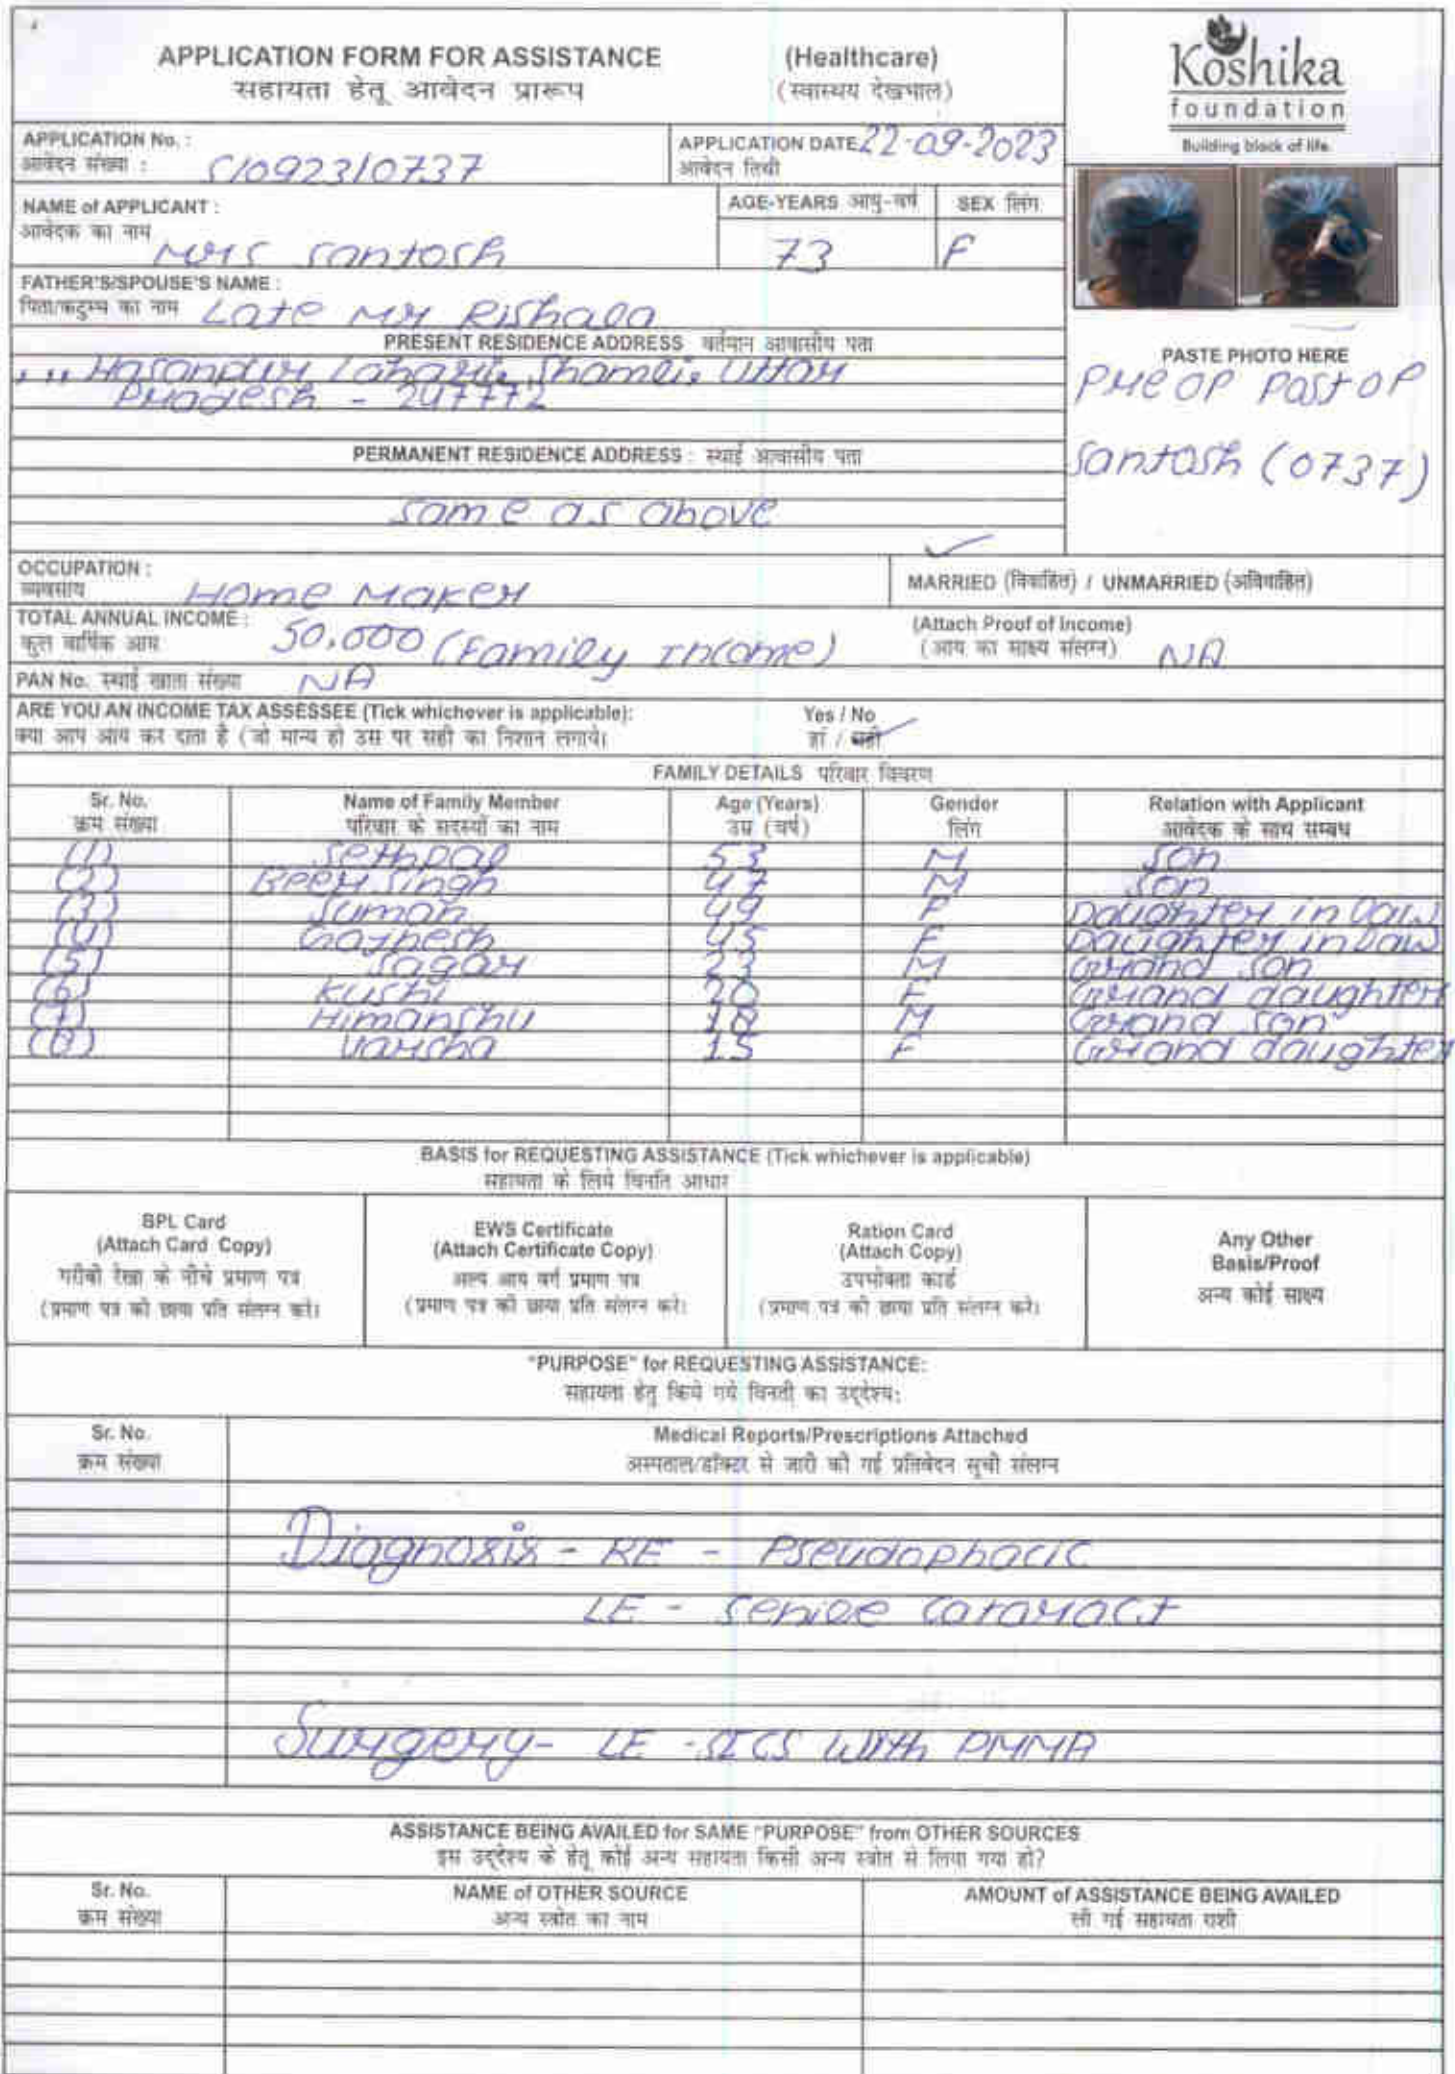 APPLICATION FORM FOR ASSISTANCE (Healthcare)
सहायता हेतू आवेदन प्रारूप (स्वास्थय देखभाल)
Koshika
foundation
Building block of life.
APPLICATION No. :
आवेदन संख्या : S/0923/0737
APPLICATION DATE 22-09-2023
आवेदन तिथी
NAME of APPLICANT :
आवेदक का नाम Mrs Santosh
AGE-YEARS आयु-वर्ष 73
SEX लिंग F
FATHER'S/SPOUSE'S NAME :
पिता/कटुम्ब का नाम Late Mr Rishala
PRESENT RESIDENCE ADDRESS वर्तमान आवासीय पता
Hasanpur Shamli, Uttar
Pradesh -
PASTE PHOTO HERE
Pre OP Post OP
Santosh (0737)
PERMANENT RESIDENCE ADDRESS : स्थाई आवासीय पता
Same as above
OCCUPATION :
व्यवसाय Home Maker
MARRIED (विवाहित) / UNMARRIED (अविवाहित)
TOTAL ANNUAL INCOME :
कुल वार्षिक आय 50,000 (Family Income)
(Attach Proof of Income)
(आय का साक्ष्य संलग्न) NA
PAN No. स्थाई खाता संख्या NA
ARE YOU AN INCOME TAX ASSESSEE (Tick whichever is applicable): Yes / No
क्या आप आय कर दाता है (जो मान्य हो उस पर सही का निशान लगाये। हां / नहीं
FAMILY DETAILS परिवार विवरण
Sr. No. Name of Family Member Age (Years) Gender Relation with Applicant
क्रम संख्या परिवार के सदस्यों का नाम उम्र (वर्ष) लिंग आवेदक के साथ सम्बध
(1) Sethpal 53 M Son
(2) Beer Singh 47 M Son
(3) Suman 49 F Daughter in law
(4) Gajnesh 45 F Daughter in law
(5) Sagar 23 M Grand Son
(6) Kushi 20 F Grand daughter
(7) Himanshu 18 M Grand Son
(8) Varsha 15 F Grand daughter
BASIS for REQUESTING ASSISTANCE (Tick whichever is applicable)
सहायता के लिये विनति आधार
BPL Card
(Attach Card Copy)
गरीबी रेखा के नीचे प्रमाण पत्र
(प्रमाण पत्र की छाया प्रति संलग्न करे।
EWS Certificate
(Attach Certificate Copy)
अल्य आय वर्ग प्रमाण पत्र
(प्रमाण पत्र की छाया प्रति संलग्न करे।
Ration Card
(Attach Copy)
उपभोक्ता कार्ड
(प्रमाण पत्र की छाया प्रति संलग्न करे।
Any Other
Basis/Proof
अन्य कोई साक्ष्य
"PURPOSE" for REQUESTING ASSISTANCE:
सहायता हेतु किये गये विनती का उद्देश्य:
Sr. No. Medical Reports/Prescriptions Attached
क्रम संख्या अस्पताल/डॉक्टर से जारी की गई प्रतिवेदन सूची संलग्न
Diagnosis - RE - Pseudophacic
LE - Senile Cataract
Surgery - LE - SICS With PMMA
ASSISTANCE BEING AVAILED for SAME "PURPOSE" from OTHER SOURCES
इस उद्देश्य के हेतू कोई अन्य सहायता किसी अन्य स्त्रोत से लिया गया हो?
Sr. No. NAME of OTHER SOURCE AMOUNT of ASSISTANCE BEING AVAILED
क्रम संख्या अन्य स्त्रोत का नाम ली गई सहायता राशी